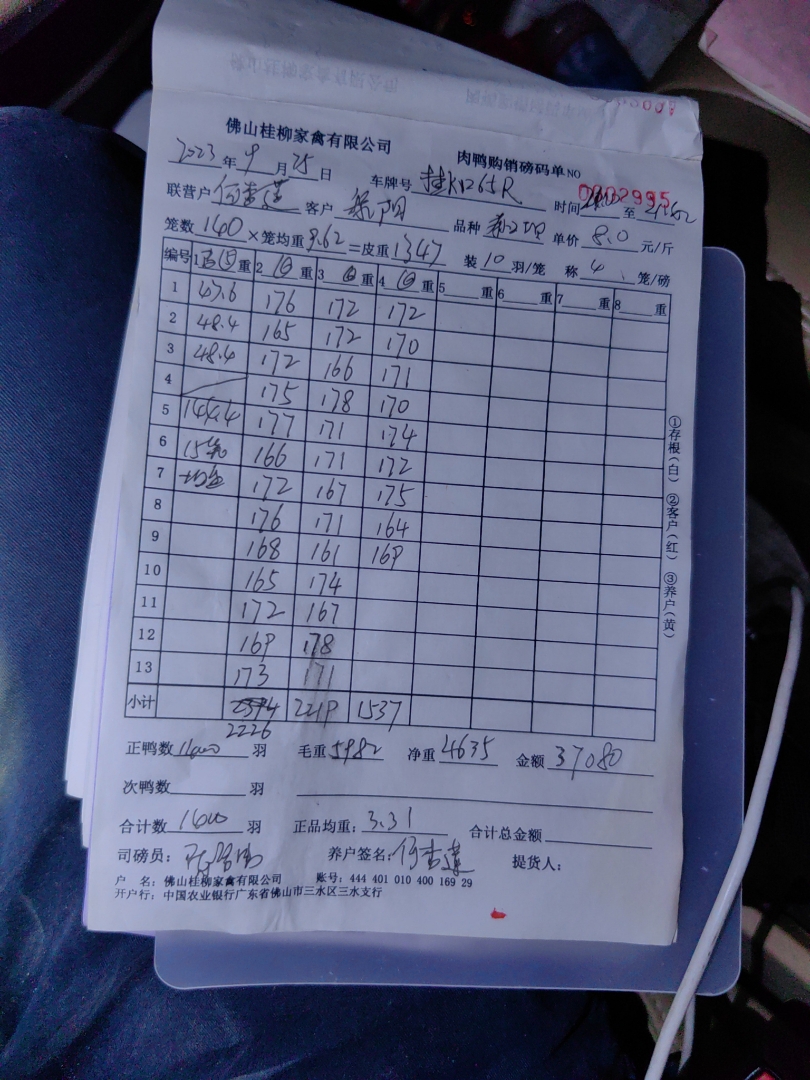 佛山桂柳家禽有限公司
肉鸭购销磅码单 NO 0002995
2023 年 9 月 25 日 车牌号 桂K1265R 时间 至
联营户 何杏莲 客户 品种 单价 8.0 元/斤
笼数 140 ×笼均重 9.62 =皮重 1347 装 10 羽/笼 称 4 笼/磅
编号 1 重 2 重 3 重 4 重 5 重 6 重 7 重 8 重
1 47.6 176 172 172
2 48.4 165 172 170
3 48.4 172 166 171
4 175 178 170
5 144.4 177 171 174
6 166 171 172
7 172 167 175
8 176 171 164
9 168 161 169
10 165 174
11 172 167
12 169 178
13 173 171
小计 2219 1537
2226
正鸭数 羽 毛重 5982 净重 4635 金额 37080
次鸭数 羽
合计数 羽 正品均重: 3.31 合计总金额
司磅员: 养户签名: 何杏莲 提货人:
户 名: 佛山桂柳家禽有限公司 账号: 444 401 010 400 169 29
开户行: 中国农业银行广东省佛山市三水区三水支行
①存根(白) ②客户(红) ③养户(黄)